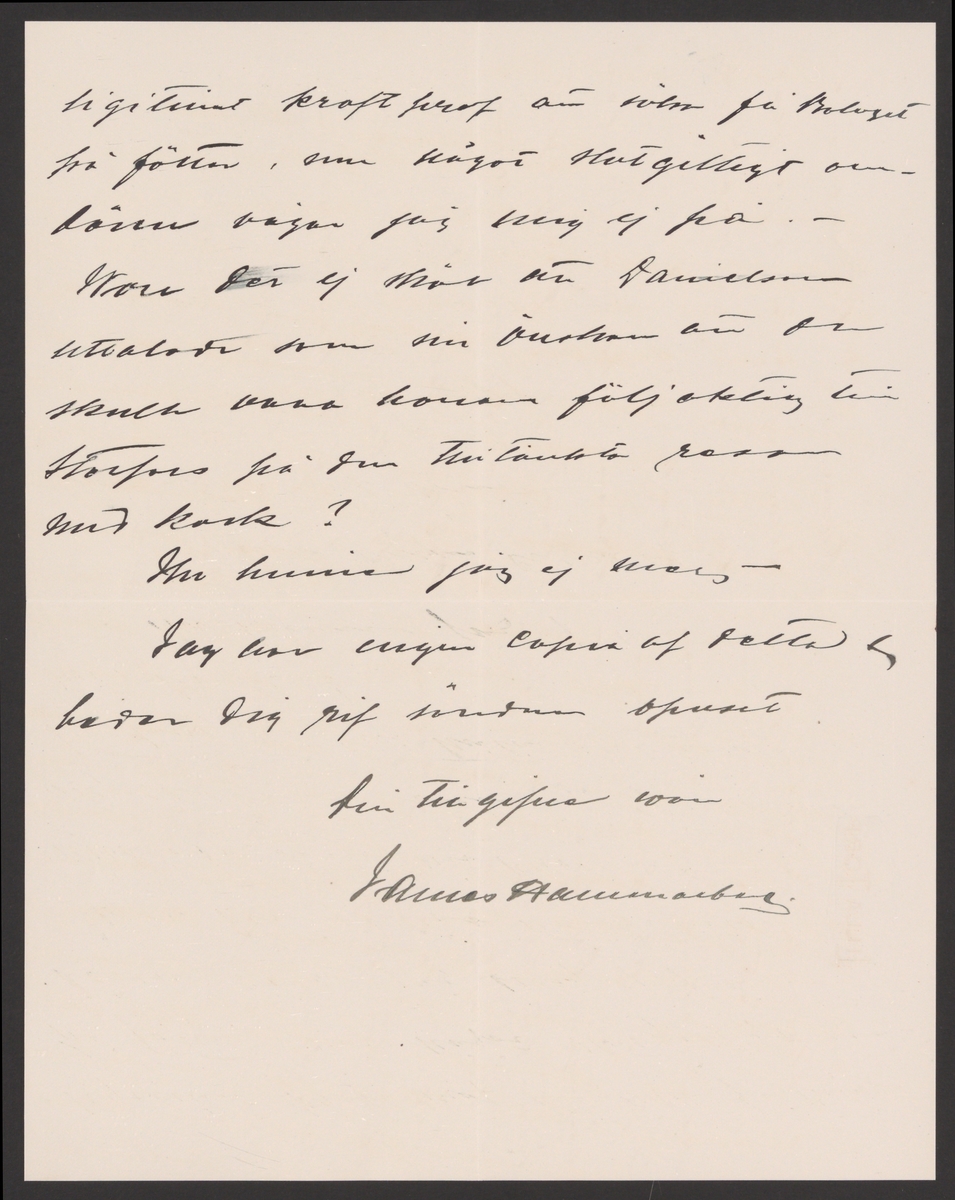 ligitimt kraftprof att söka få Bolaget
på fötter, men något slutgiltigt om-
döme vågar jag mig ej på. —
Wore det ej skäl att Danielson
uttalade som sin önskan att du
skulle vara honom följaktlig till
Storfors på den tilltänkta resan
med Kock?
Nu hinner jag ej mer, —
Jag har ingen copia af detta &
beder Dig rif sönder opuset
Din tillgifne vän
James Hammarberg.